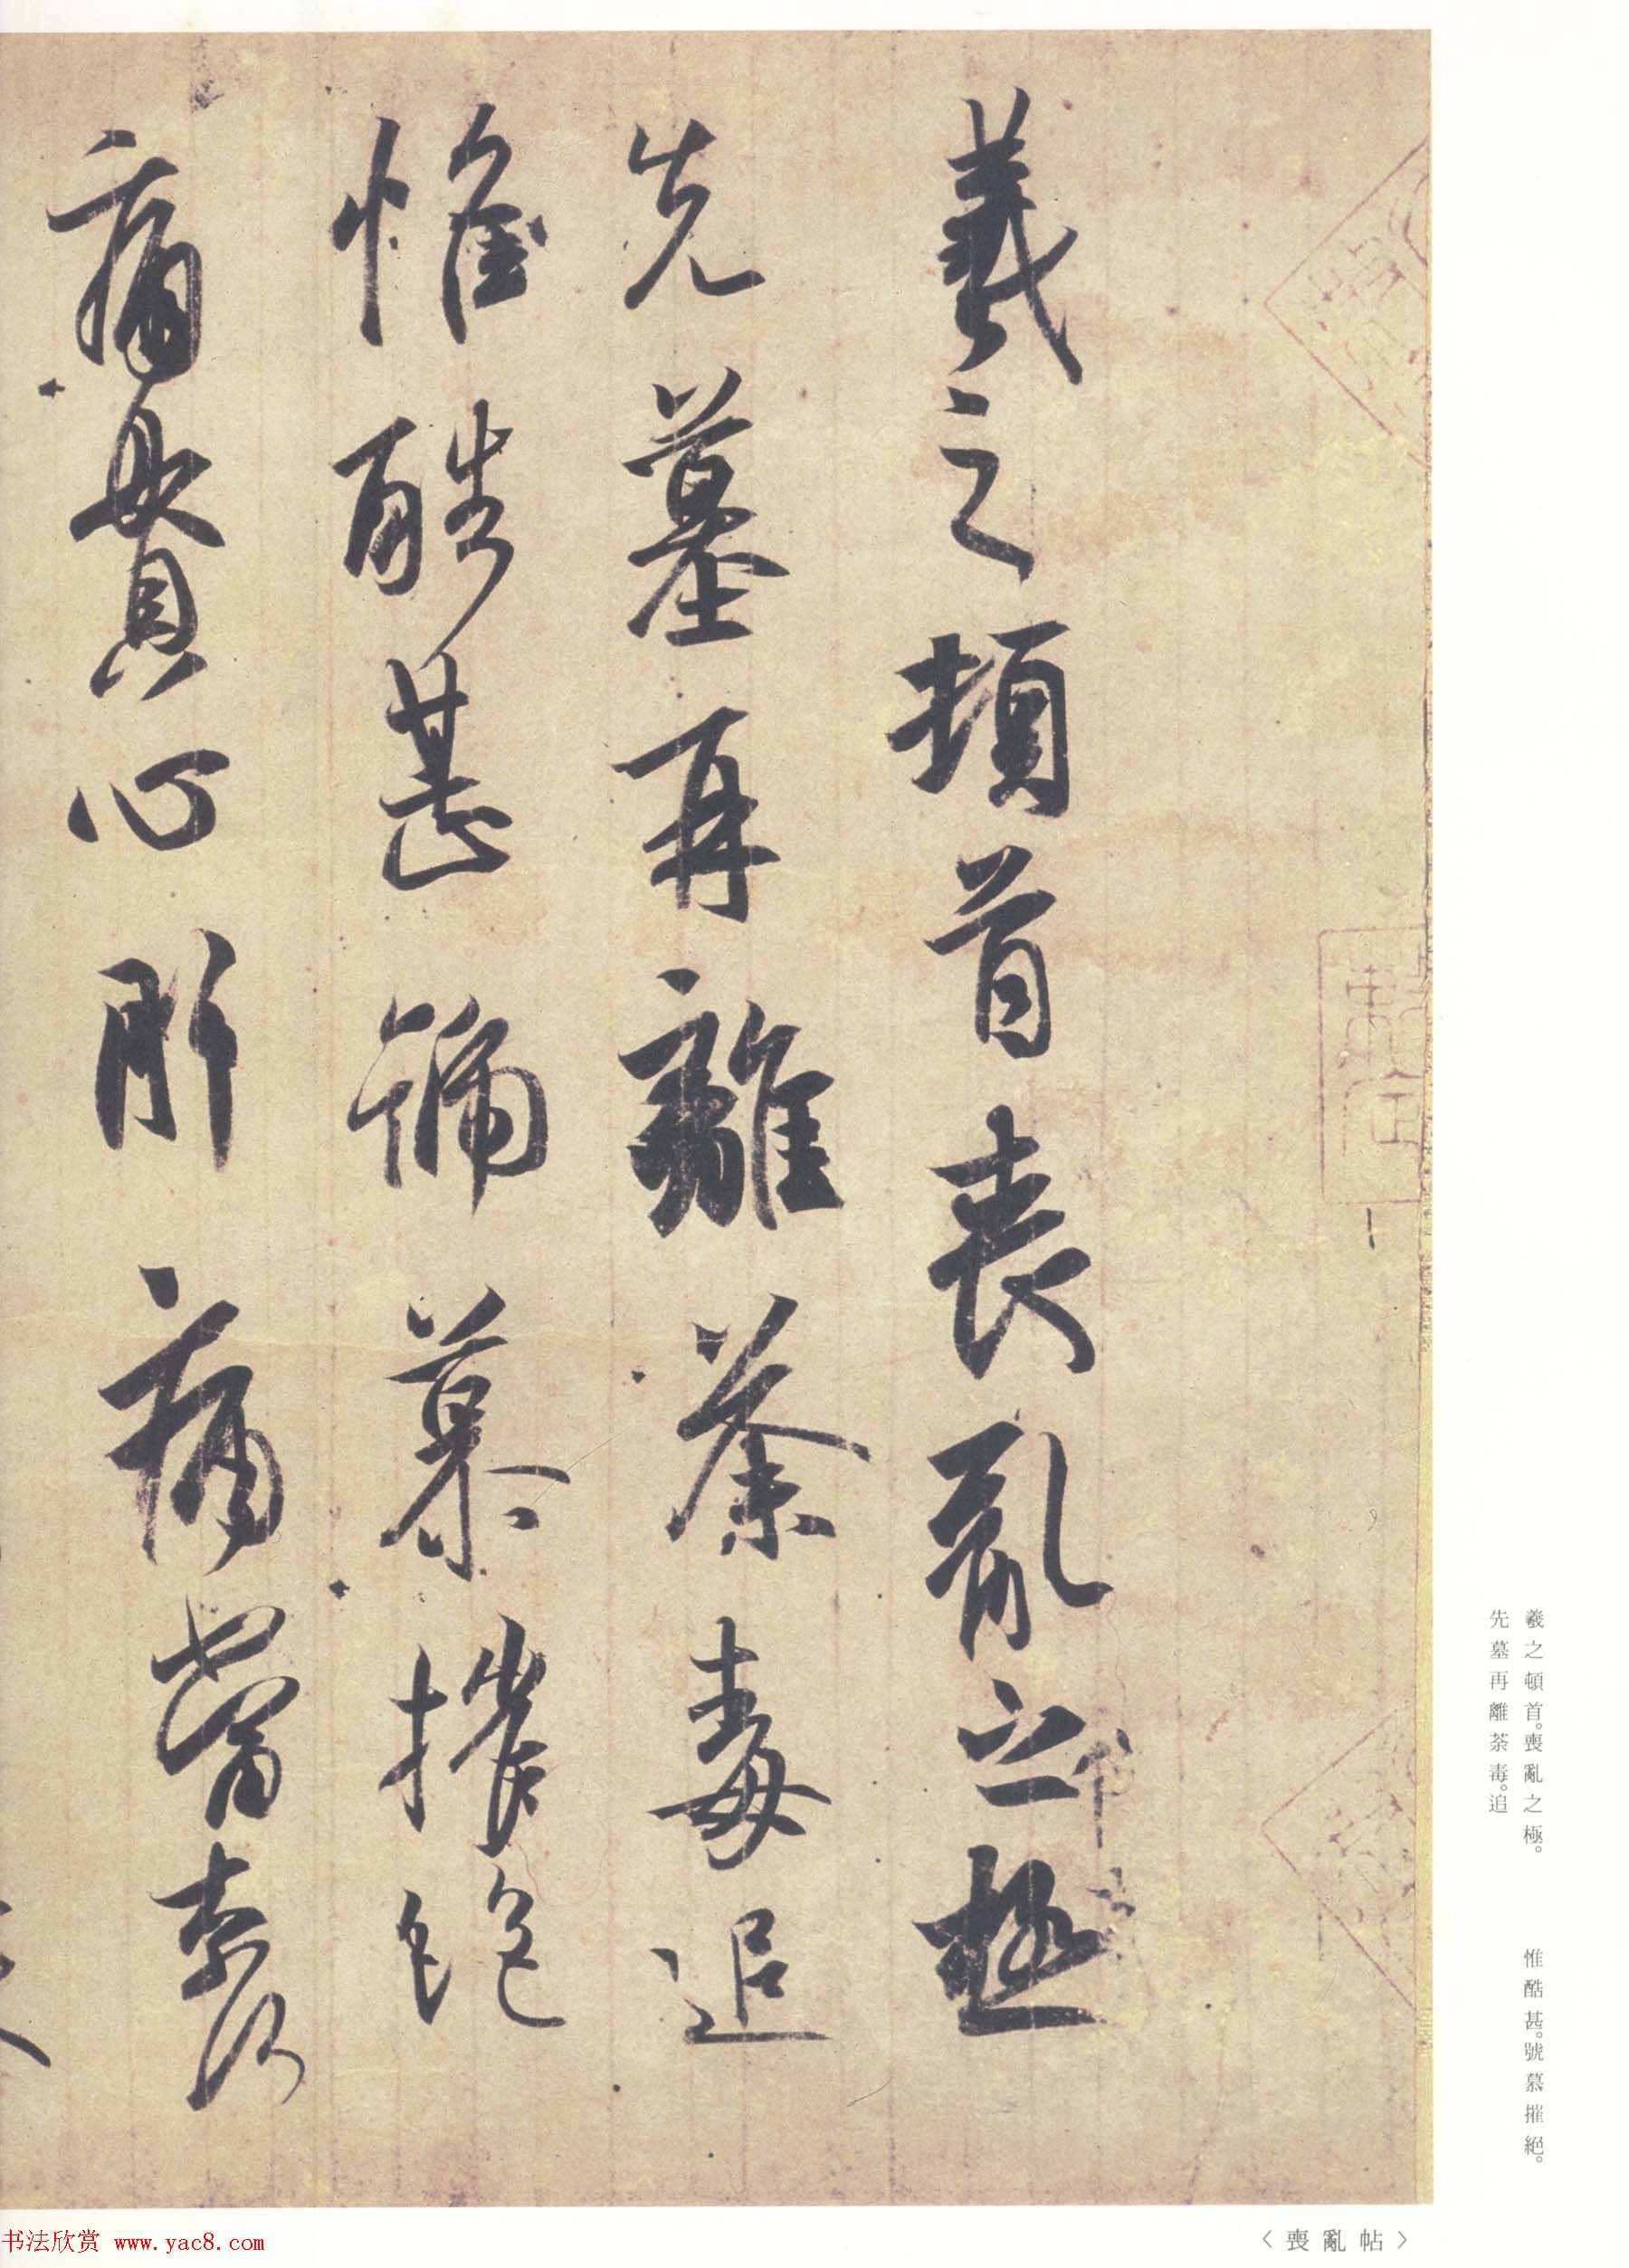 羲之頓首喪亂之極
先墓再離荼毒追
惟酷甚號慕摧絶
痛貫心肝痛當柰何
羲之頓首。喪亂之極。
先墓再離荼毒。追
惟酷甚。號慕摧絕。
〈喪亂帖〉
书法欣赏 www.yac8.com